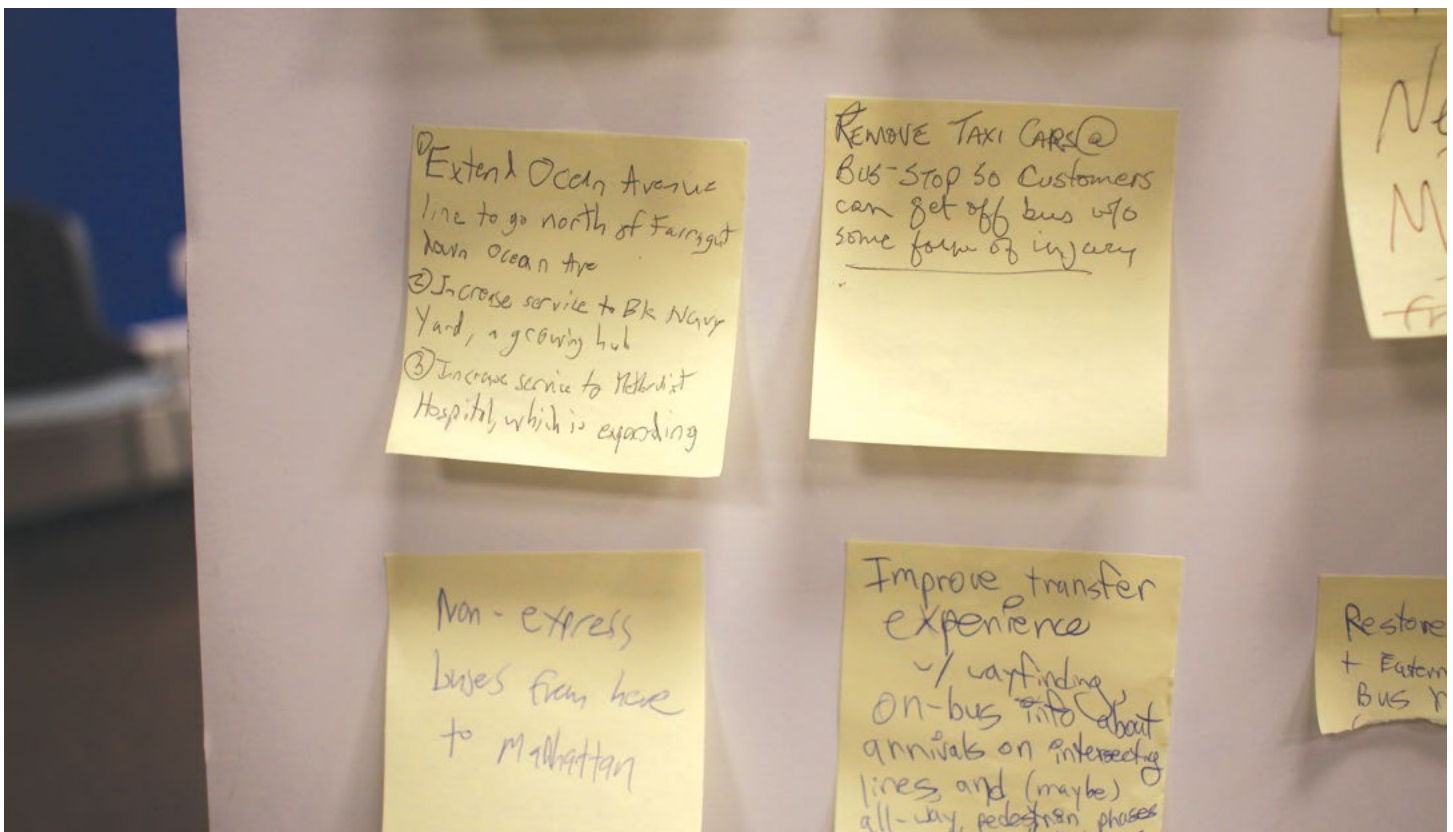 ① Extend Ocean Avenue
line to go north of Farragut
down Ocean Ave
② Increase service to Bk Navy
Yard, a growing hub
③ Increase service to Methodist
Hospital, which is expanding
REMOVE TAXI CARS @
BUS-STOP SO Customers
can get off bus w/o
some form of injury
Non-express
buses from here
to Manhattan
Improve transfer
experience
w/ wayfinding,
on-bus info about
arrivals on intersecting
lines, and (maybe)
all-way pedestrian phases
Restore
+ Eastern
Bus